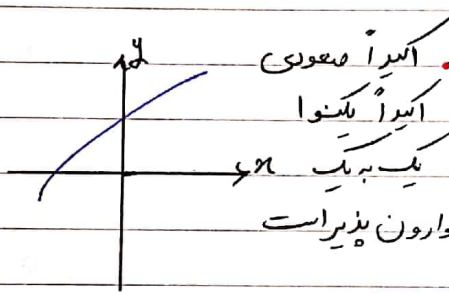 اکیداً صعودی
اکیداً یکنوا
یک به یک
وارون پذیر است
y
x